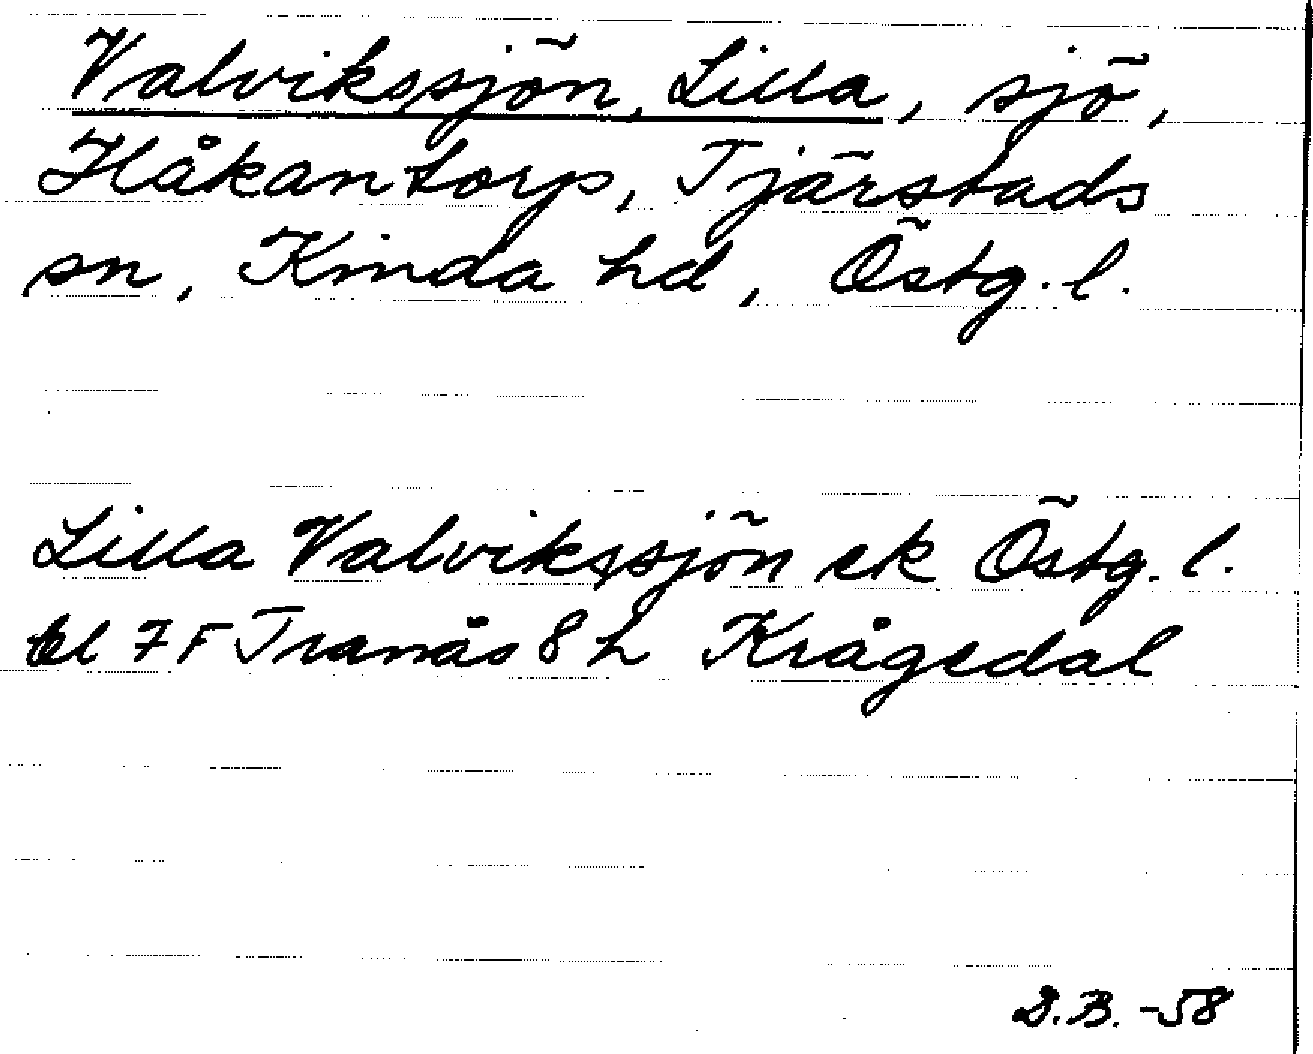 Valvikssjön, Lilla, sjö,
Håkantorp, Tjärstads
sn, Kinda hd, Östg. l.
Lilla Valvikssjön ek Östg. l.
bl 7 F Tranås 8 h Krågedal
D.B. -58